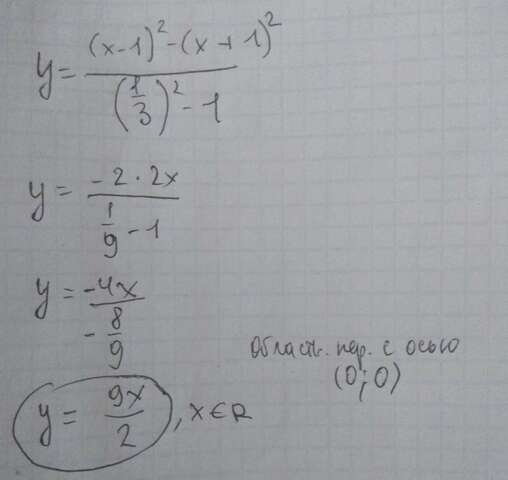 y = \frac{(x-1)^2-(x+1)^2}{(\frac{1}{3})^2-1}
y = \frac{-2·2x}{\frac{1}{9}-1}
y = \frac{-4x}{-\frac{8}{9}}
Област. пер. с осью
(0;0)
y = \frac{9x}{2}, x∈R